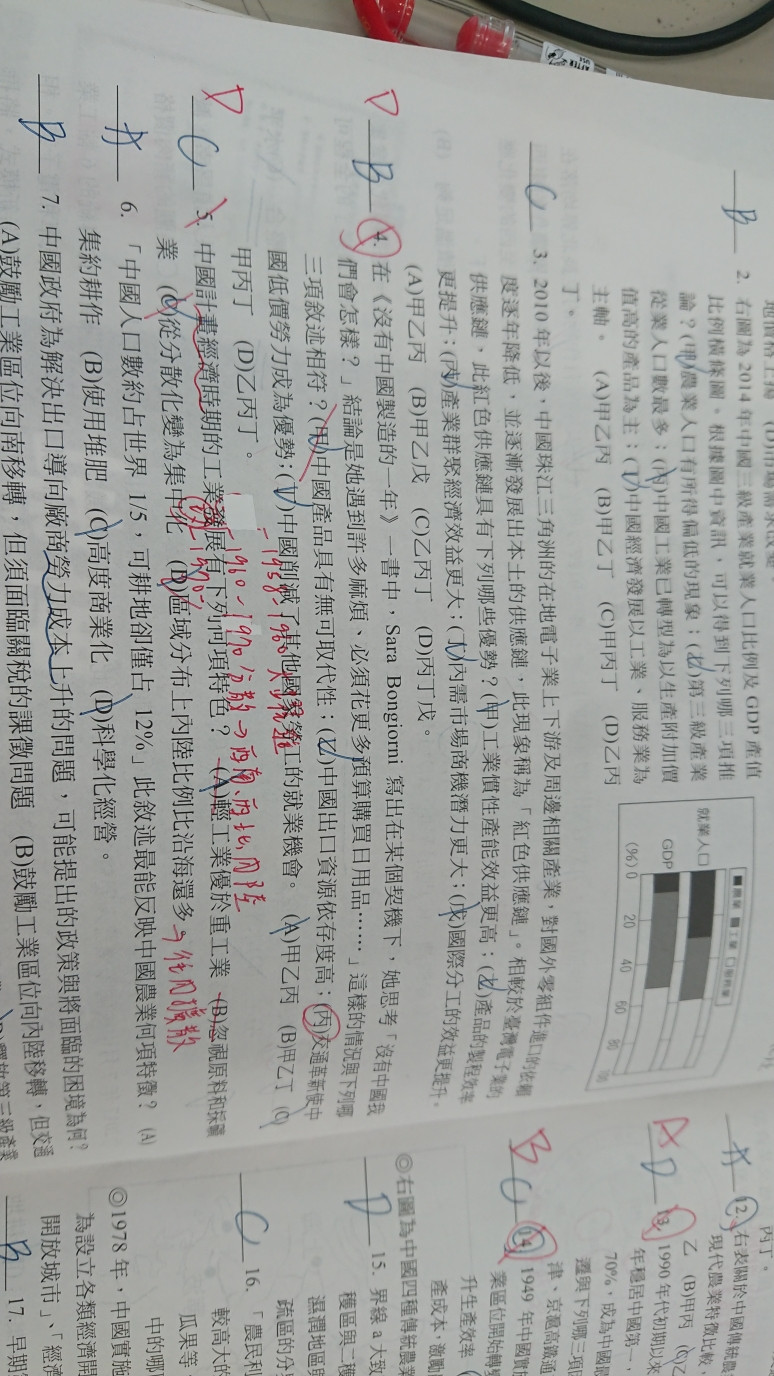 B 2. 右圖為 2014 年中國三級產業就業人口比例及 GDP 產值
比例橫條圖。根據圖中資訊，可以得到下列哪三項推
論？(甲)農業人口有所得偏低的現象；(乙)第三級產業
從業人口數最多；(丙)中國工業已轉型為以生產附加價
值高的產品為主；(丁)中國經濟發展以工業、服務業為
主軸。 (A)甲乙丙 (B)甲乙丁 (C)甲丙丁 (D)乙丙
丁。
■農業 ■工業 □服務業
就業人口
GDP
(%) 0 20 40 60 80 100
C 3. 2010 年以後，中國珠江三角洲的在地電子業上下游及周邊相關產業，對國外零組件進口的依賴
度逐年降低，並逐漸發展出本土的供應鏈，此現象稱為「紅色供應鏈」。相較於臺灣電子業的
供應鏈，此紅色供應鏈具有下列哪些優勢？(甲)工業慣性產能效益更高；(乙)產品的製程效率
更提升；(丙)產業群聚經濟效益更大；(丁)內需市場商機潛力更大；(戊)國際分工的效益更提升。
(A)甲乙丙 (B)甲乙戊 (C)乙丙丁 (D)丙丁戊。
D B 4. 在《沒有中國製造的一年》一書中，Sara Bongiorni 寫出在某個契機下，她思考「沒有中國我
們會怎樣？」結論是她遇到許多麻煩、必須花更多預算購買日用品……」這樣的情況與下列哪
三項敘述相符？(甲)中國產品具有無可取代性；(乙)中國出口資源依存度高；(丙)交通革新使中
國低價勞力成為優勢；(丁)中國削減了其他國家勞工的就業機會。 (A)甲乙丙 (B)甲乙丁 (C)
甲丙丁 (D)乙丙丁。
1958~1960
1960~1970分散→西南、西北內陸
D C 5. 中國計畫經濟時期的工業發展有下列何項特色？ (A)輕工業優於重工業 (B)忽視原料和採礦
業 (C)從分散化變為集中化 (D)區域分布上內陸比例比沿海還多→往內擴散
A 6. 「中國人口數約占世界 1/5，可耕地卻僅占 12%」此敘述最能反映中國農業何項特徵？ (A)
集約耕作 (B)使用堆肥 (C)高度商業化 (D)科學化經營。
B 7. 中國政府為解決出口導向廠商勞力成本上升的問題，可能提出的政策與將面臨的困境為何？
(A)鼓勵工業區位向南移轉，但須面臨關稅的課徵問題 (B)鼓勵工業區位向內陸移轉，但交通
丙丁。
A 12. 右表關於中國傳統農
現代農業特徵比較，
乙 (B)甲丙 (C)乙
A D 13. 1990 年代初期以來
年穩居中國第一，
70%，成為中國最
遷與下列哪三項因
津、京滬高鐵通
B C 14. 1949 年中國實施
業區位開始轉變
升生產效率
產成本，激勵
◎右圖為中國四種傳統農業
D 15. 界線 a 大致
穫區與二穫
濕潤地區與
疏區的分界
C 16. 「農民利
較高大的
瓜果等
中的哪
◎1978 年，中國實施
為設立各類經濟開
開放城市」、「經濟
B 17. 早期